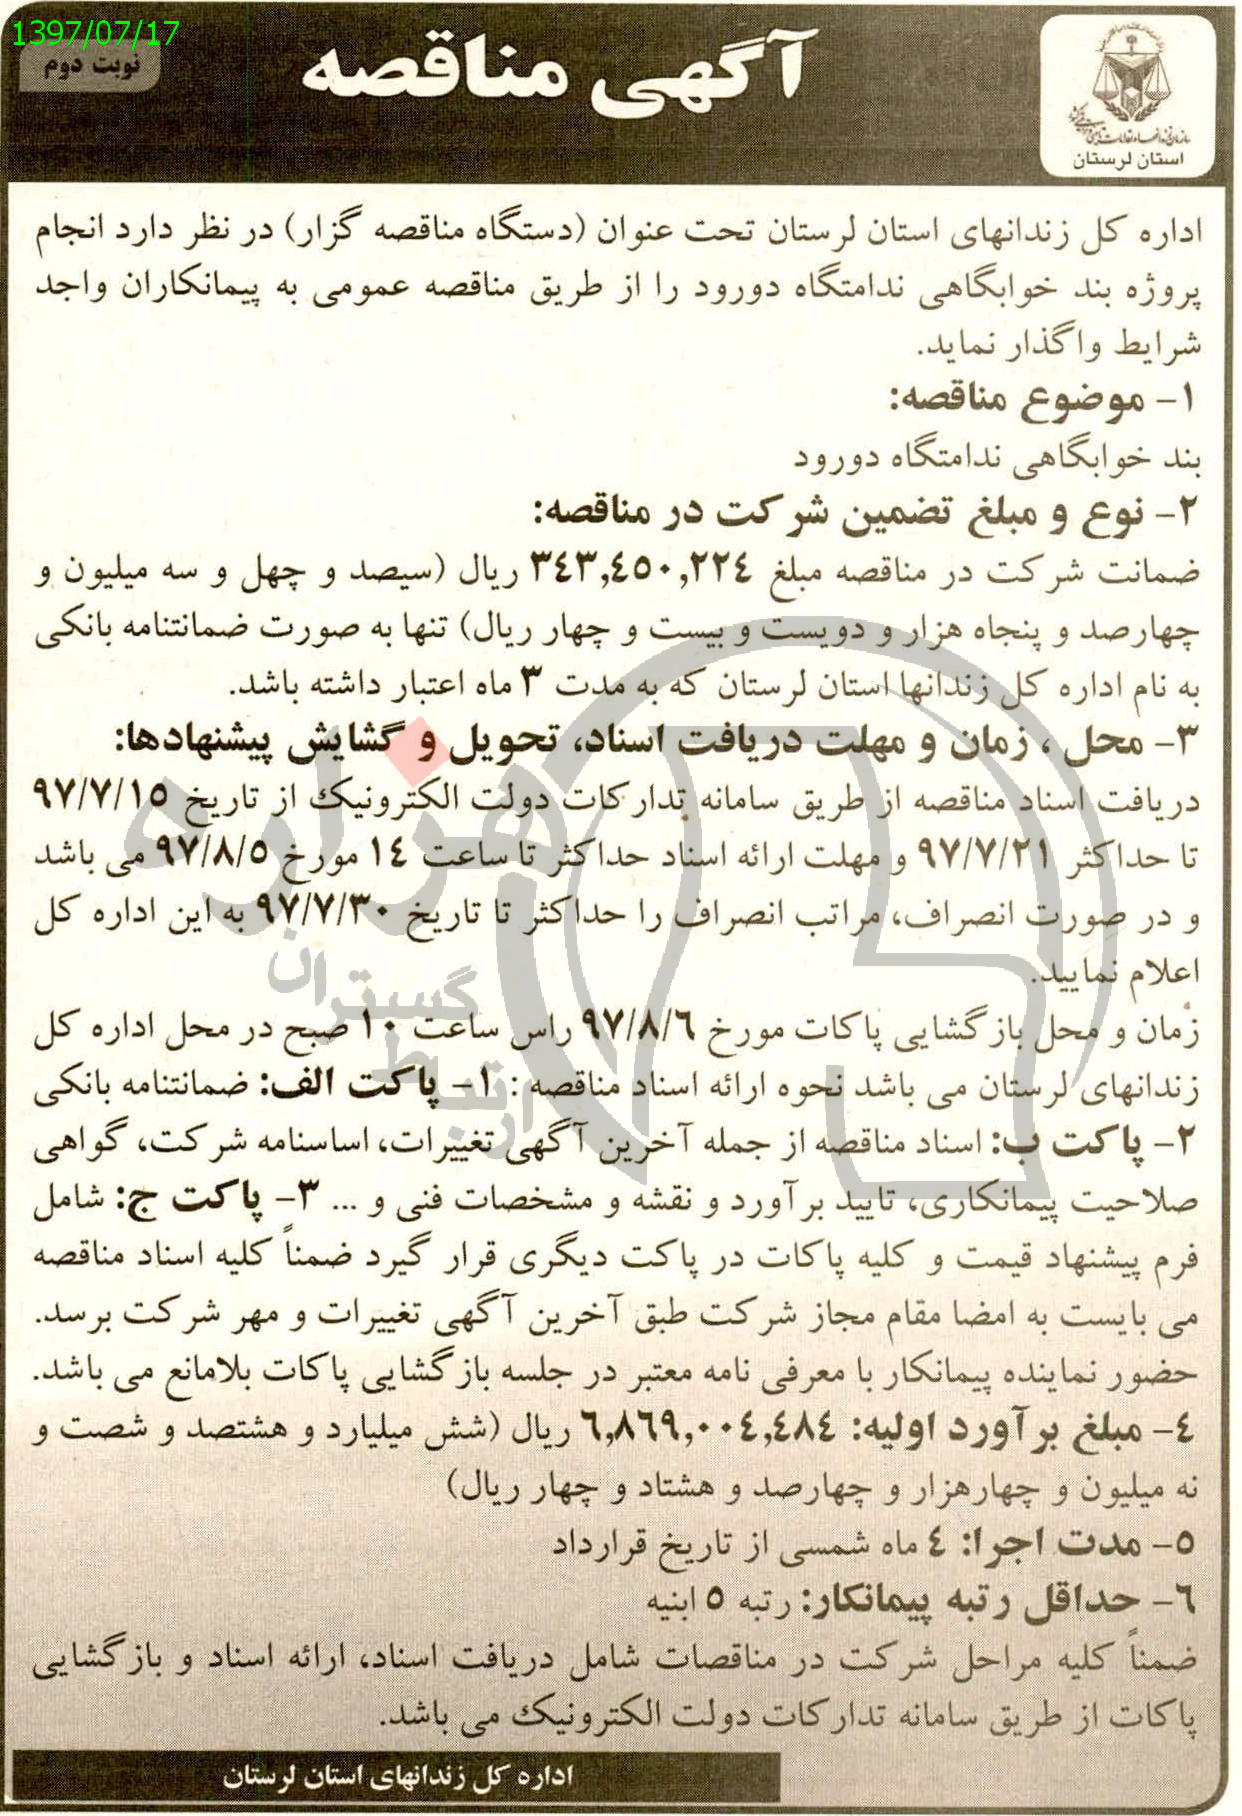 1397/07/17
نوبت دوم
آگهی مناقصه
استان لرستان
اداره کل زندانهای استان لرستان تحت عنوان (دستگاه مناقصه گزار) در نظر دارد انجام
پروژه بند خوابگاهی ندامتگاه دورود را از طریق مناقصه عمومی به پیمانکاران واجد
شرایط واگذار نماید.
۱- موضوع مناقصه:
بند خوابگاهی ندامتگاه دورود
۲- نوع و مبلغ تضمین شرکت در مناقصه:
ضمانت شرکت در مناقصه مبلغ ۳٤۳,٤٥۰,۲۲٤ ریال (سیصد و چهل و سه میلیون و
چهارصد و پنجاه هزار و دویست و بیست و چهار ریال) تنها به صورت ضمانتنامه بانکی
به نام اداره کل زندانها استان لرستان که به مدت ۳ ماه اعتبار داشته باشد.
۳- محل ، زمان و مهلت دریافت اسناد، تحویل و گشایش پیشنهادها:
دریافت اسناد مناقصه از طریق سامانه تدارکات دولت الکترونیک از تاریخ ۹۷/۷/۱٥
تا حداکثر ۹۷/۷/۲۱ و مهلت ارائه اسناد حداکثر تا ساعت ۱٤ مورخ ۹۷/۸/٥ می باشد
و در صورت انصراف، مراتب انصراف را حداکثر تا تاریخ ۹۷/۷/۳۰ به این اداره کل
اعلام نمایید.
زمان و محل بازگشایی پاکات مورخ ۹۷/۸/٦ راس ساعت ۱۰ صبح در محل اداره کل
زندانهای لرستان می باشد نحوه ارائه اسناد مناقصه : ۱- پاکت الف: ضمانتنامه بانکی
۲- پاکت ب: اسناد مناقصه از جمله آخرین آگهی تغییرات، اساسنامه شرکت، گواهی
صلاحیت پیمانکاری، تایید برآورد و نقشه و مشخصات فنی و ... ۳- پاکت ج: شامل
فرم پیشنهاد قیمت و کلیه پاکات در پاکت دیگری قرار گیرد ضمناً کلیه اسناد مناقصه
می بایست به امضا مقام مجاز شرکت طبق آخرین آگهی تغییرات و مهر شرکت برسد.
حضور نماینده پیمانکار با معرفی نامه معتبر در جلسه بازگشایی پاکات بلامانع می باشد.
٤- مبلغ برآورد اولیه: ٦,۸٦۹,۰۰٤,٤۸٤ ریال (شش میلیارد و هشتصد و شصت و
نه میلیون و چهارهزار و چهارصد و هشتاد و چهار ریال)
٥- مدت اجرا: ٤ ماه شمسی از تاریخ قرارداد
٦- حداقل رتبه پیمانکار: رتبه ٥ ابنیه
ضمناً کلیه مراحل شرکت در مناقصات شامل دریافت اسناد، ارائه اسناد و بازگشایی
پاکات از طریق سامانه تدارکات دولت الکترونیک می باشد.
اداره کل زندانهای استان لرستان
هزاره
گستران
ارتباط